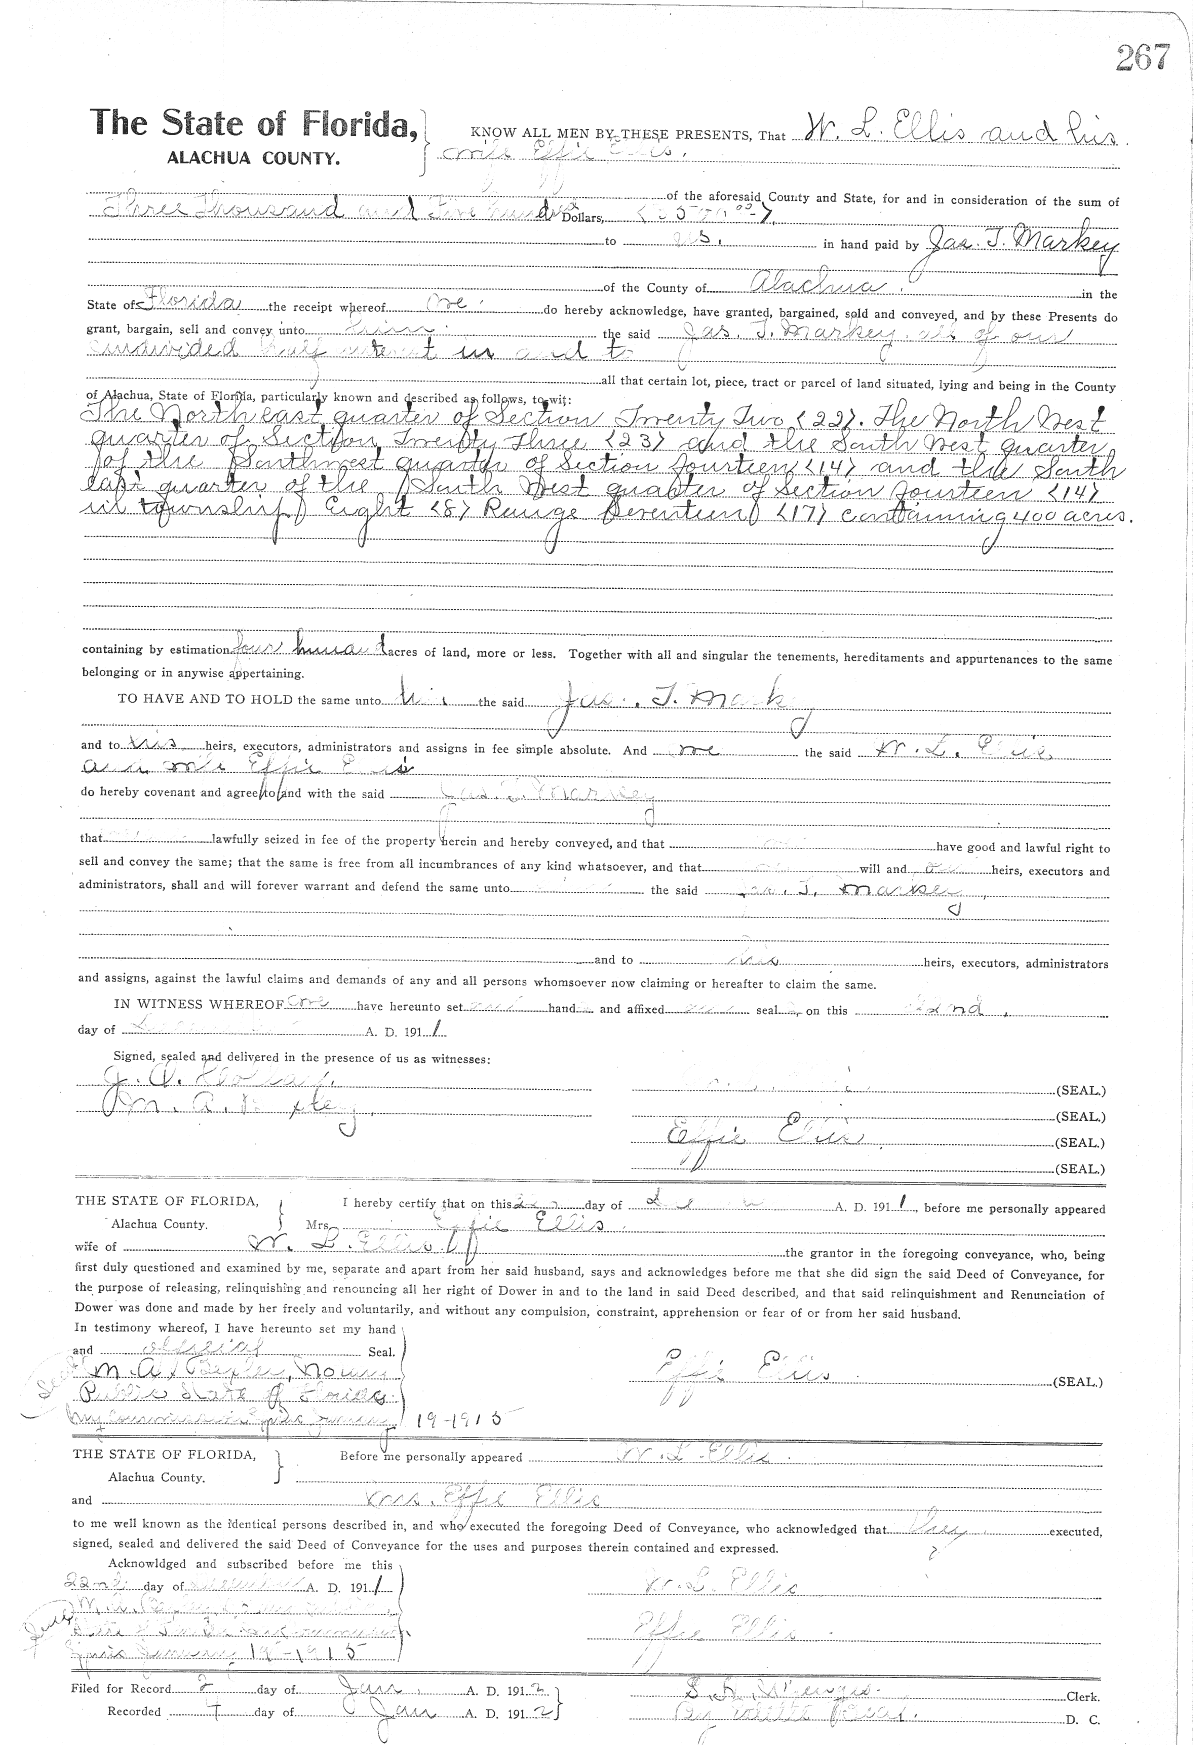 267
The State of Florida,
ALACHUA COUNTY.
KNOW ALL MEN BY THESE PRESENTS, That W. L. Ellis and his
wife Effie Ellis.
of the aforesaid County and State, for and in consideration of the sum of
Three Thousand and Five hundred Dollars,
to us. in hand paid by Jas. T. Markey
of the County of Alachua. in the
State of Florida the receipt whereof we do hereby acknowledge, have granted, bargained, sold and conveyed, and by these Presents do
grant, bargain, sell and convey unto him the said Jas. T. Markey all of our
undivided half interest in and to
all that certain lot, piece, tract or parcel of land situated, lying and being in the County
of Alachua, State of Florida, particularly known and described as follows, to-wit:
The North east quarter of Section Twenty Two (22). The North West
quarter of Section Twenty Three (23) and the South West quarter
of the Southwest quarter of Section fourteen (14) and the South
east quarter of the South West quarter of Section fourteen (14)
in township Eight (8) Range Seventeen (17) containing 400 acres.
containing by estimation four hundred acres of land, more or less. Together with all and singular the tenements, hereditaments and appurtenances to the same
belonging or in anywise appertaining.
TO HAVE AND TO HOLD the same unto him the said Jas. T. Markey
and to his heirs, executors, administrators and assigns in fee simple absolute. And we the said W. L. Ellis
and wife Effie Ellis
do hereby covenant and agree to and with the said Jas. T. Markey
that lawfully seized in fee of the property herein and hereby conveyed, and that have good and lawful right to
sell and convey the same; that the same is free from all incumbrances of any kind whatsoever, and that will and our heirs, executors and
administrators, shall and will forever warrant and defend the same unto the said Jas. T. Markey
and to his heirs, executors, administrators
and assigns, against the lawful claims and demands of any and all persons whomsoever now claiming or hereafter to claim the same.
IN WITNESS WHEREOF we have hereunto set our hand and affixed our seal on this 22nd
day of A. D. 1911
Signed, sealed and delivered in the presence of us as witnesses:
(SEAL.)
M. A. (SEAL.)
Effie Ellis (SEAL.)
(SEAL.)
THE STATE OF FLORIDA,
Alachua County.
I hereby certify that on this day of A. D. 1911, before me personally appeared
Mrs. Effie Ellis
wife of W. L. Ellis the grantor in the foregoing conveyance, who, being
first duly questioned and examined by me, separate and apart from her said husband, says and acknowledges before me that she did sign the said Deed of Conveyance, for
the purpose of releasing, relinquishing and renouncing all her right of Dower in and to the land in said Deed described, and that said relinquishment and Renunciation of
Dower was done and made by her freely and voluntarily, and without any compulsion, constraint, apprehension or fear of or from her said husband.
In testimony whereof, I have hereunto set my hand
and official Seal.
M. A.
Effie Ellis (SEAL.)
Public State of Florida.
My Commission Expires January 19-1915
THE STATE OF FLORIDA,
Alachua County.
Before me personally appeared W. L. Ellis
and Mrs. Effie Ellis
to me well known as the identical persons described in, and who executed the foregoing Deed of Conveyance, who acknowledged that they executed,
signed, sealed and delivered the said Deed of Conveyance for the uses and purposes therein contained and expressed.
Acknowldged and subscribed before me this
22nd day of A. D. 1911
W. L. Ellis
Effie Ellis
January 19-1915
Filed for Record 2 day of Jan. A. D. 1912
Clerk.
Recorded 4 day of Jan A. D. 1912
D. C.